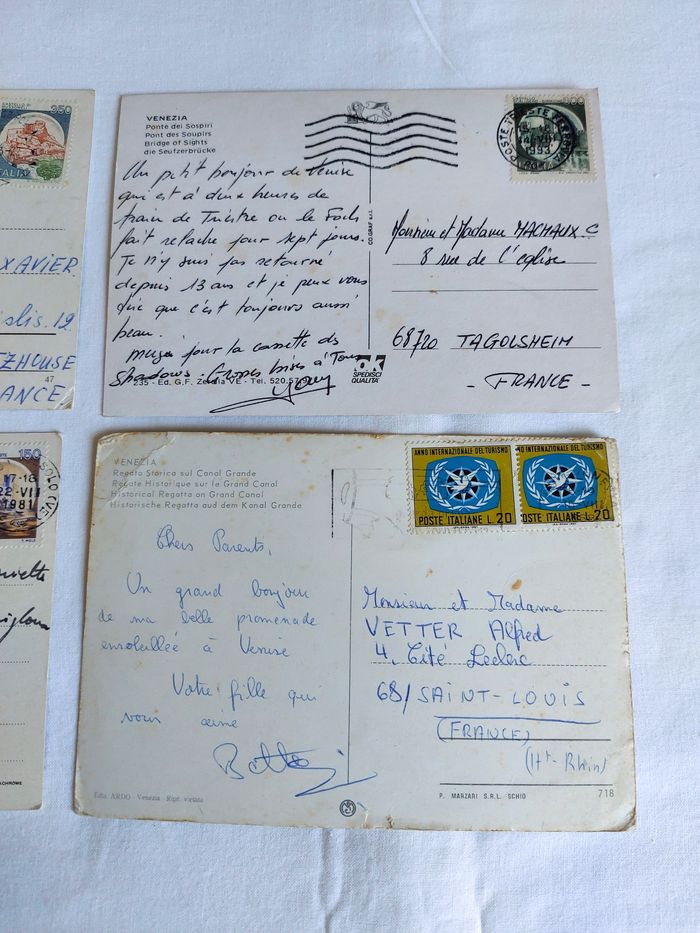 350
ITALIA
XAVIER
12
FRANCE
47
VENEZIA
Ponte dei Sospiri
Pont des Soupirs
Bridge of Sights
die Seufzerbrücke
POSTE
1993
Un petit bonjour de Venise
qui est à deux heures de
train de Trieste ou le Foch
fait relache pour sept jours.
Je n'y suis pas retourné
depuis 13 ans et je peux vous
dire que c'est toujours aussi
beau.
pour la cassette des
Shadows. Grosses bises à Tous
235 - Ed. G.F. VE - Tel. 520.57
CO.GRAF s.r.l.
OK
SPEDISCI
QUALITA'
Monsieur et Madame MACHAUX C
8 rue de l'église
68720 TAGOLSHEIM
- FRANCE -
150
17-18
22-VII
1981
VENEZIA
Regata Storica sul Canal Grande
Regate Historique sur le Grand Canal
Historical Regatta on Grand Canal
Historische Regatta auf dem Kanal Grande
ANNO INTERNAZIONALE DEL TURISMO
POSTE ITALIANE L.20
NO INTERNAZIONALE DEL TURISMO
OSTE ITALIANE L.20
Chers Parents,
Un grand bonjour
de ma belle promenade
ensoleillée à Venise
Votre fille qui
vous aime
Monsieur et Madame
VETTER Alfred
4, Cité Leclerc
68/SAINT-LOUIS
(FRANCE)
(Ht-Rhin)
Ediz. ARDO - Venezia Ripr. vietata
P. MARZARI S.R.L. SCHIO
718